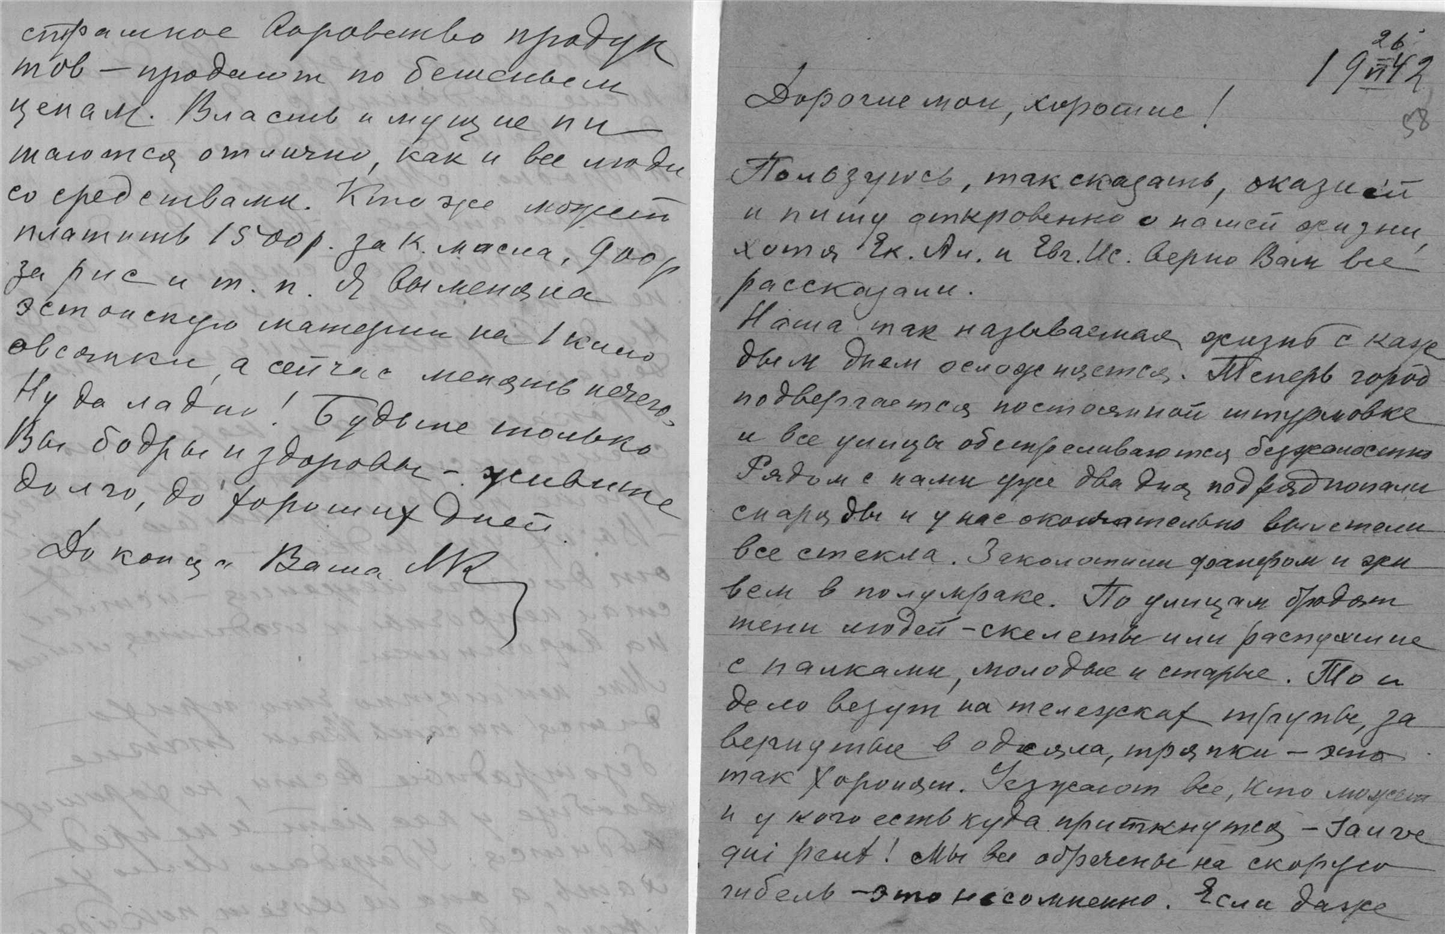 страшное воровство продук
тов – продают по бешеным
ценам. Власть имущие пи
таются отлично, как и все люди
со средствами. Кто же может
платить 1500р. за к. масла, 900р
за рис и т. п. Я выменяла
эстонскую материю на 1 кило
овсянки, а сейчас менять нечего.
Ну да ладно! Будьте только
Вы бодры и здоровы – живите
долго, до хороших дней.
До конца Ваша МК
26
19 IV 42
58
Дорогие мои, хорошие!
Пользуюсь, так сказать, оказией
и пишу откровенно о нашей жизни,
хотя Ек. Ан. и Евг. Ис. верно Вам все
рассказали.
Наша так называемая жизнь с каж
дым днем осложняется. Теперь город
подвергается постоянной штурмовке
и все улицы обстреливаются безжалостно
Рядом с нами уже два дня подряд попали
снаряды и у нас окончательно вылетели
все стекла. Заколотили фанером и жи
вем в полумраке. По улицам бродят
тени людей – скелеты или распухшие
с палками, молодые и старые. То и
дело везут на тележках трупы, за
вернутые в одеяла, тряпки – это
так хоронят. Уезжают все, кто может
и у кого есть куда приткнутся – Sauve
qui peut! Мы все обречены на скорую
гибель – это несомненно. Если даже